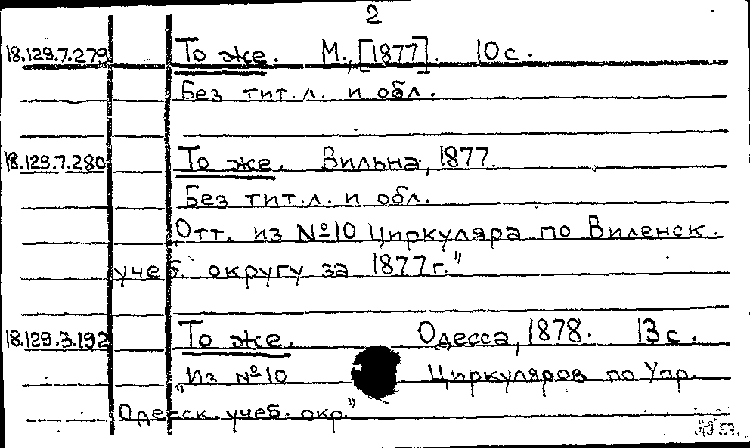 2
18.129.7.279 То же. М., [1877]. 10 с.
Без тит. л. и обл.
18.129.7.280 То же. Вильна, 1877.
Без тит. л. и обл.
„Отт. из №10 Циркуляра по Виленск.
учеб. округу за 1877 г."
18.129.3.192 То же. Одесса, 1878. 13 с.
„Из №10 Циркуляров по Упр.
Одесск. учеб. окр."